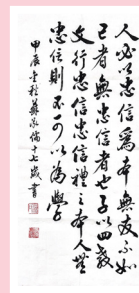 人必以忠信為本無友不如
己者無忠信者也子以四教
文行忠信忠信禮之本人無
忠信則不可以為學
甲辰金秋蘇
十七歲書